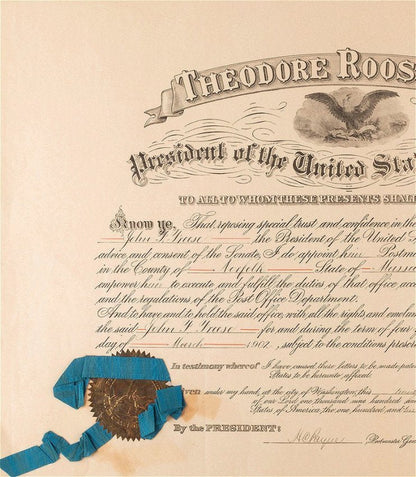 THEODORE ROOS
President of the United Sta
TO ALL TO WHOM THESE PRESENTS SHAL
Know ye, That reposing special trust and confidence in the
John F. the President of the United S
advice and consent of the Senate, I do appoint him Postm
in the County of Norfolk State of Mass
empower him to execute and fulfill the duties of that office, acc
and the regulations of the Post Office Department:
And to have and to hold the said office, with all the rights and emolum
the said John F. for and during the term of four
day of March 1902, subject to the conditions prescri
In testimony whereof I have caused these letters to be made paten
States to be hereunto affixed.
Given under my hand, at the city of Washington, this
of our Lord one thousand nine hundred and
States of America, the one hundred and
By the PRESIDENT:
H C Payne Postmaster Gen